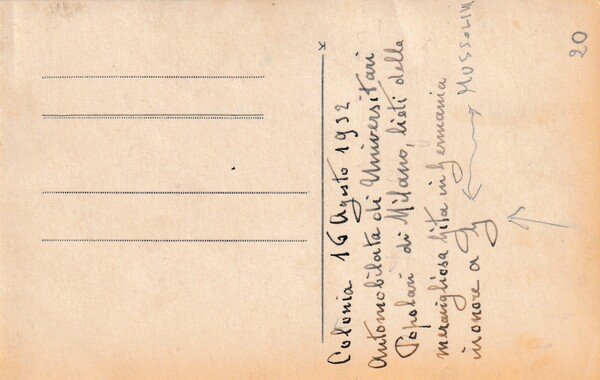 Colonia 16 Agosto 1932
Automobilata di Universitari
Popolari di Milano, lieti della
meravigliosa gita in Germania
in onore a
MUSSOLINI
20